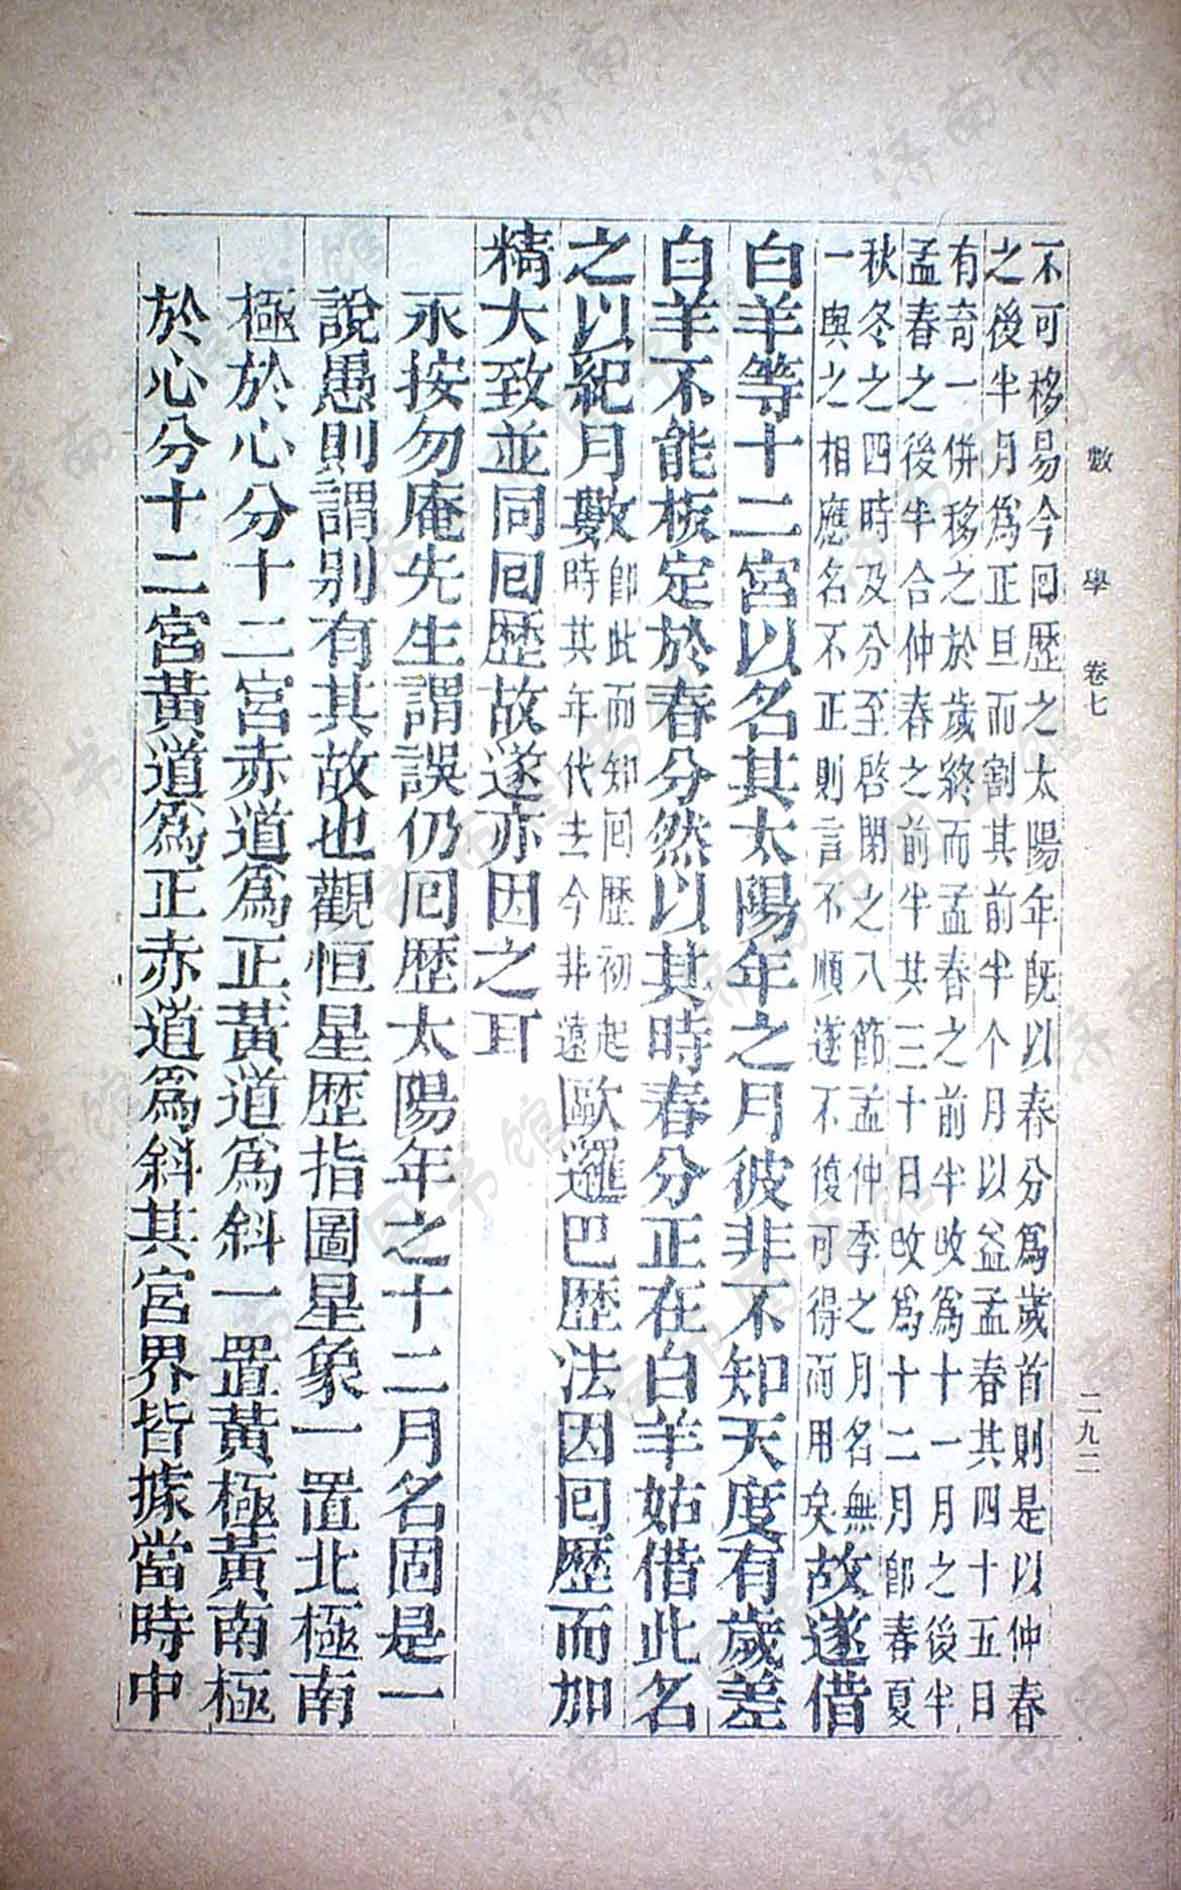 數學 卷七 二九二
不可移易今回歷之太陽年旣以春分爲歲首則是以仲春
之後半月爲正旦而割其前半个月以益孟春其四十五日
有奇一併移之於歲終而孟春之前半收爲十一月之後半
孟春之後半合仲春之前半其三十日收爲十二月卽春夏
秋冬之四時及分至啓閉之八節孟仲季之月名無
一與之相應名不正則言不順遂不復可得而用矣故遂借
白羊等十二宮以名其太陽年之月彼非不知天度有歲差
白羊不能板定於春分然以其時春分正在白羊姑借此名
之以紀月數卽此而知回歷初起
時其年代去今非遠歐邏巴歷法因回歷而加
精大致並同回歷故遂亦因之耳
永按勿庵先生謂誤仍回歷太陽年之十二月名固是一
說愚則謂別有其故也觀恒星歷指圖星象一置北極南
極於心分十二宮赤道爲正黃道爲斜一置黃極黃南極
於心分十二宮黃道爲正赤道爲斜其宮界皆據當時中